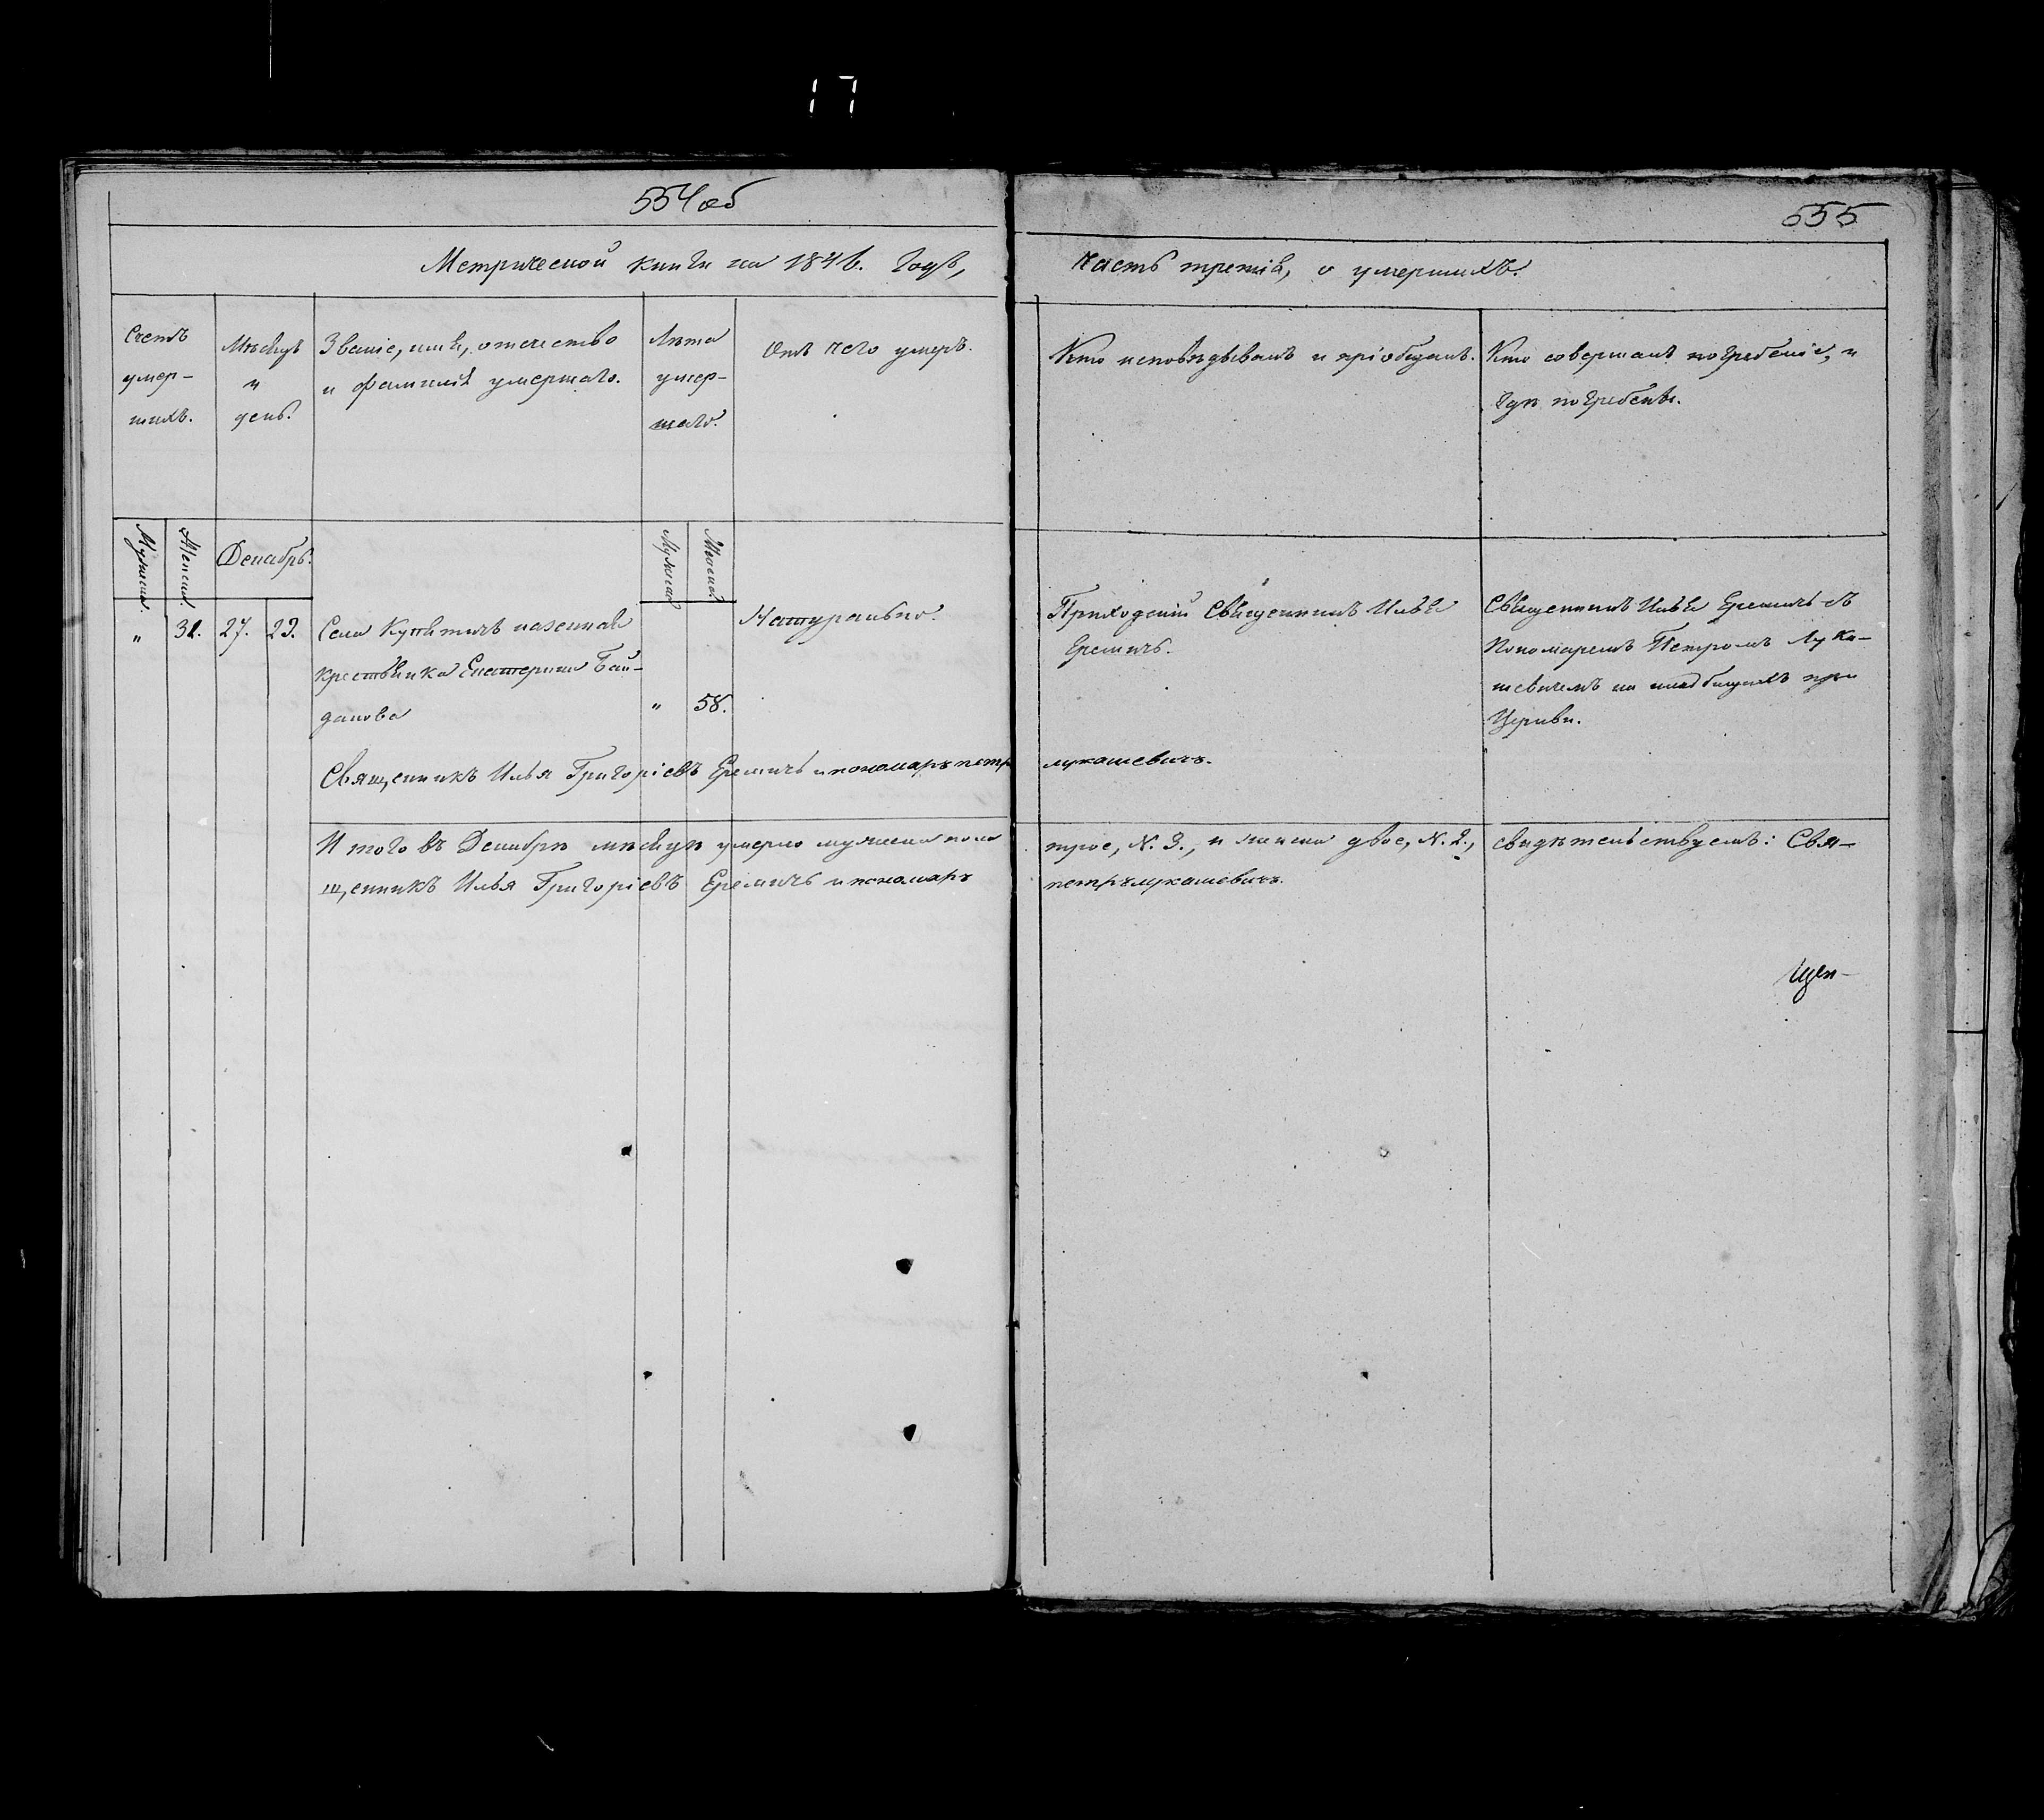 17
554 об
555
Метрической книги на 1846. годъ,
часть третія, о умершихъ.
Счетъ
умер-
шихъ.
Мѣсяцъ
и
день.
Званіе, имя, отечество
и фамилія умершаго.
Лѣта
умер-
шаго.
Отъ чего умеръ.
Кто исповѣдывалъ и пріобщалъ.
Кто совершалъ погребеніе, и
гдѣ погребены.
Мужеска.
Женска.
Декабрь.
Мужеска
Женска.
"
27.
29.
Села казенная
крестьянка Екатерина Бай-
данова
"
58.
Натурально.
Приходскій Священникъ Илья
Еремичъ.
Священникъ Илья Еремичъ съ
Пономаремъ Петромъ Лука-
шевичемъ на кладбищахъ при
Церкви.
Священникъ Илья Григоріевъ Еремичъ и пономарь петръ
лукашевичъ.
Итого въ Декабрѣ мѣсяцѣ умерло мужеска пола
трое, N. 3., и женска двое, N. 2.,
свидѣтельствуемъ: Свя-
щенникъ Илья Григоріевъ Еремичъ и пономарь
петръ лукашевичъ.